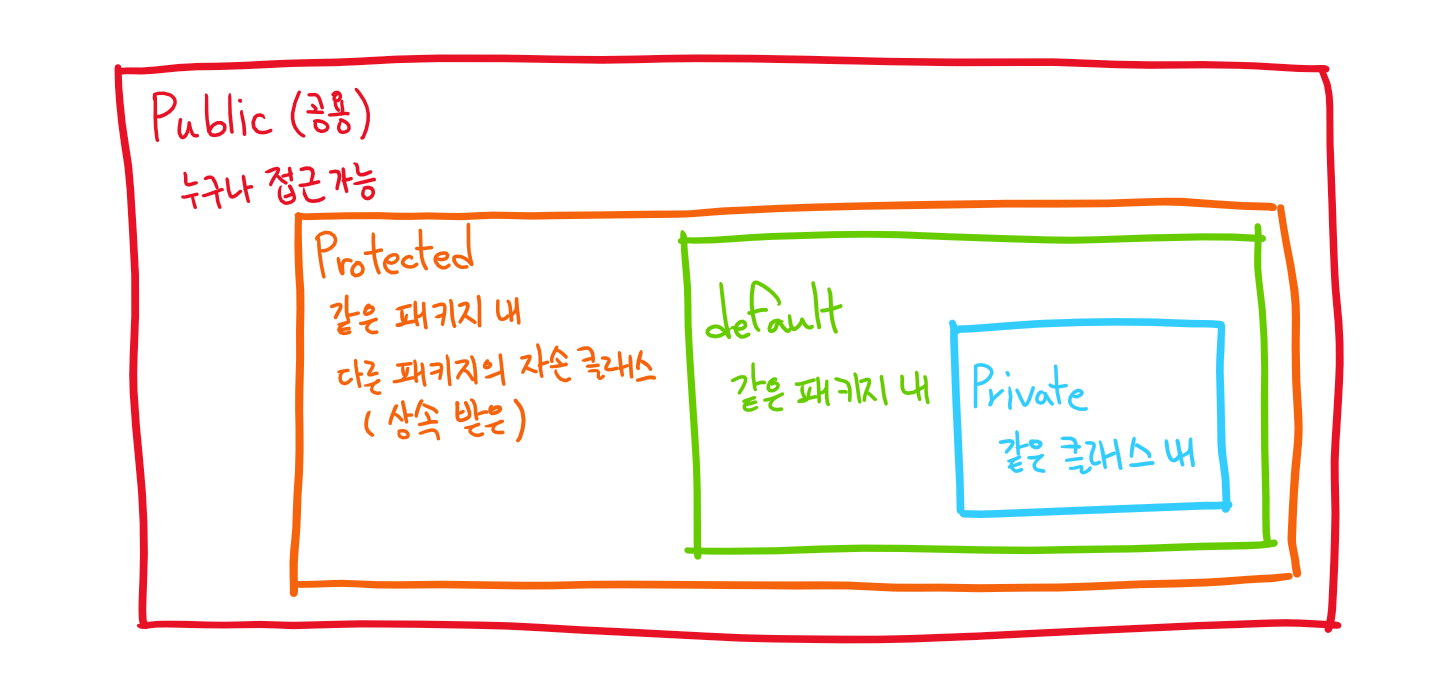 Public (공용)
누구나 접근 가능
Protected
같은 패키지 내
다른 패키지의 자손 클래스
(상속 받은)
default
같은 패키지 내
Private
같은 클래스 내